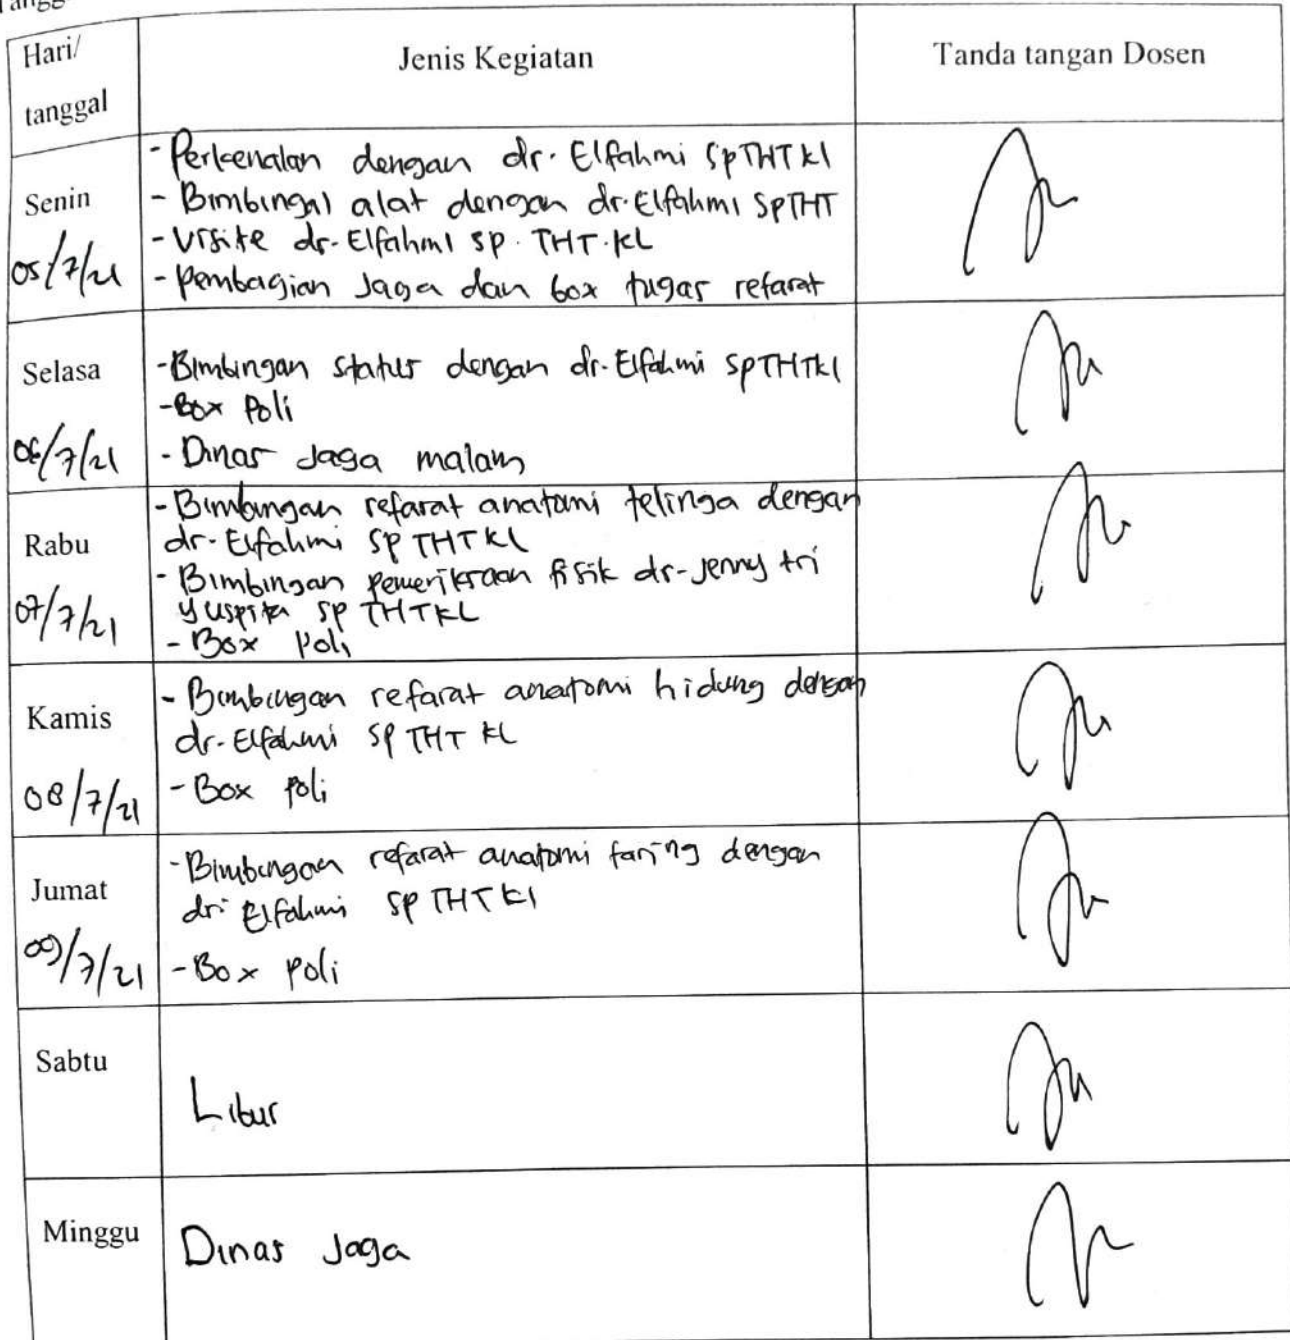 Hari/ tanggal
Jenis Kegiatan
Tanda tangan Dosen
Senin
05/7/21
- Perkenalan dengan dr. Elfahmi SpTHTKl
- Bimbingal alat dengan dr. Elfahmi SpTHT
- Visite dr. Elfahmi sp. THT.KL
- Pembagian Jaga dan box tugas refarat
Selasa
06/7/21
- Bimbingan status dengan dr. Elfahmi SpTHTKl
- Box Poli
- Dinas Jaga malam
Rabu
07/7/21
- Bimbingan refarat anatomi telinga dengan
dr. Elfahmi Sp THT KL
- Bimbingan pemeriksaan fisik dr. Jenny tri
yuspita sp THTKL
- Box Poli
Kamis
08/7/21
- Bimbingan refarat anatomi hidung dengan
dr. Elfahmi Sp THT KL
- Box Poli
Jumat
09/7/21
- Bimbingan refarat anatomi faring dengan
dr. Elfahmi Sp THT Kl
- Box Poli
Sabtu
Libur
Minggu
Dinas Jaga